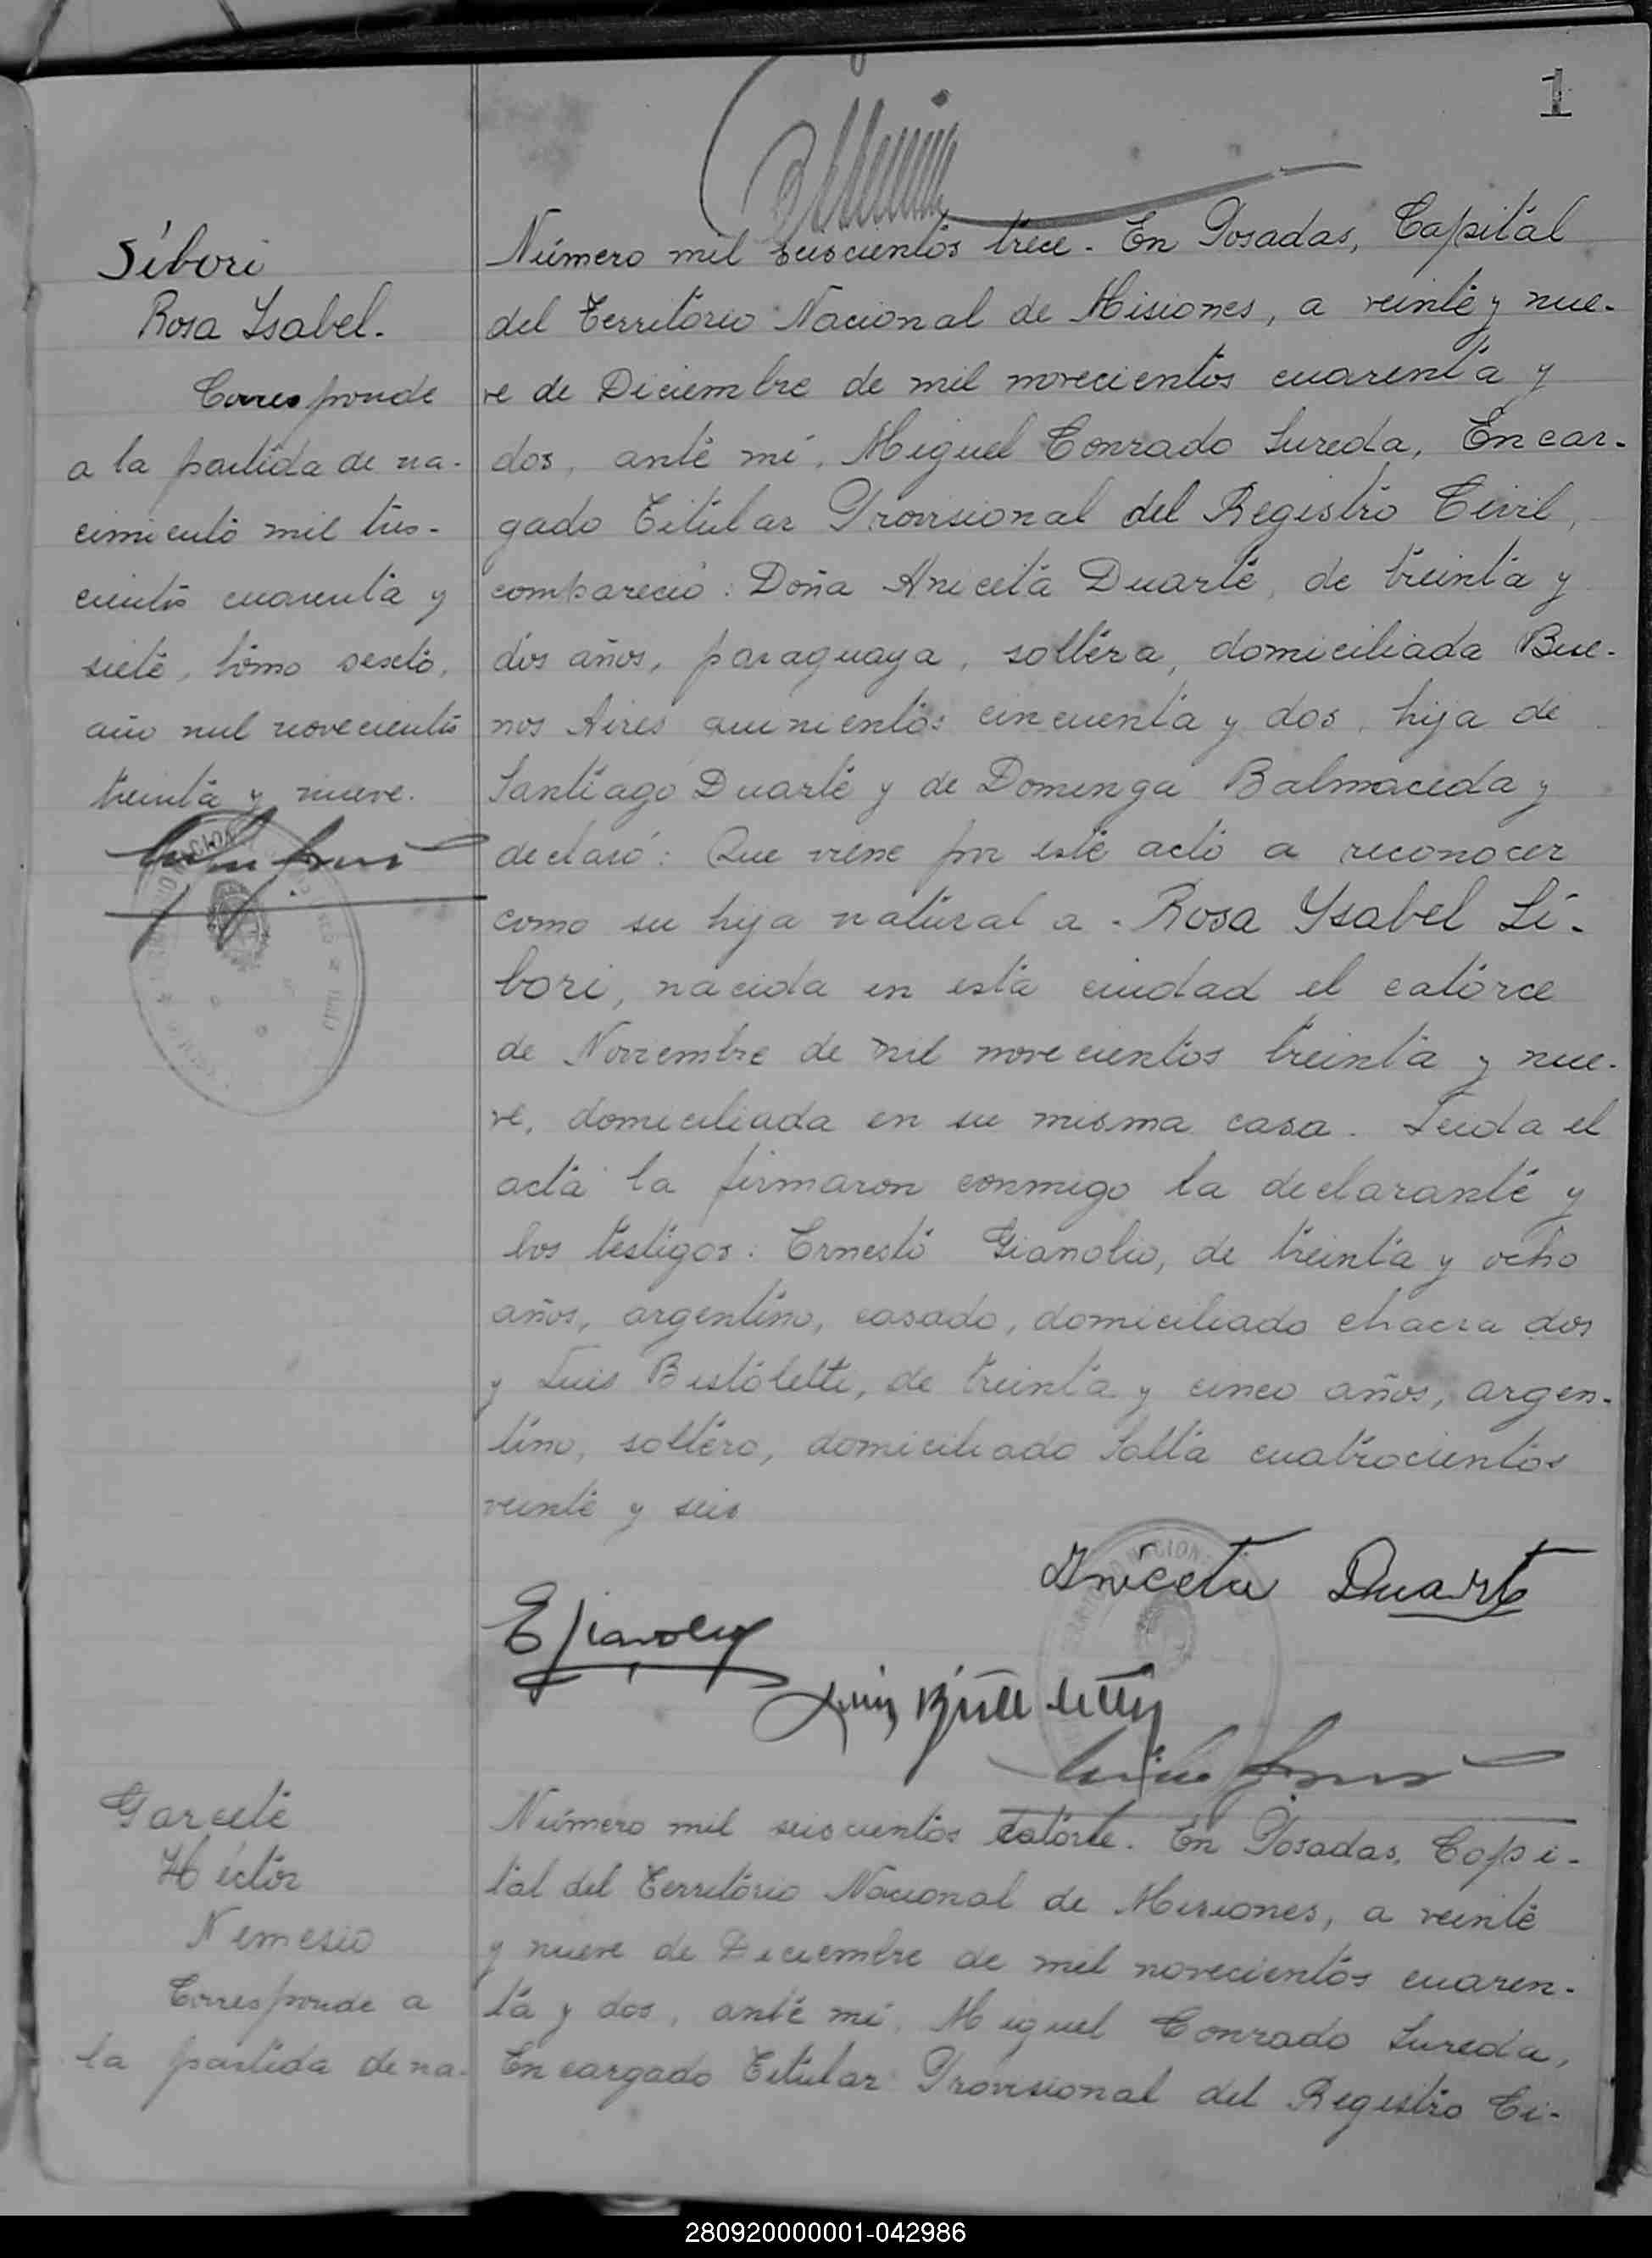 1
Síbori
Rosa Ysabel.
Corresponde
a la partida de na-
cimiento mil tres-
cientos cuarenta y
siete, tomo sexto,
año mil novecientos
treinta y nueve.
Número mil seiscientos trece. En Posadas, Capital
del Territorio Nacional de Misiones, a veinte y nue-
ve de Diciembre de mil novecientos cuarenta y
dos, ante mí, Miguel Conrado Sureda, Encar-
gado Titular Provisional del Registro Civil,
compareció: Doña Aniceta Duarte, de treinta y
dos años, paraguaya, soltera, domiciliada Bue-
nos Aires quinientos cincuenta y dos, hija de
Santiago Duarte y de Dominga Balmaceda y
declaró: Que viene por este acto a reconocer
como su hija natural a - Rosa Ysabel Sí-
bori, nacida en esta ciudad el catorce
de Noviembre de mil novecientos treinta y nue-
ve, domiciliada en su misma casa. Leida el
acta la firmaron conmigo la declarante y
los testigos: Ernesto Gianolio, de treinta y ocho
años, argentino, casado, domiciliado chacra dos
y Luis Bistoletti, de treinta y cinco años, argen-
tino, soltero, domiciliado Salta cuatrocientos
veinte y seis
Aniceta Duarte
Garcete
Héctor
Nemesio
Corresponde a
la partida de na-
Número mil seiscientos catorce. En Posadas, Capi-
tal del Territorio Nacional de Misiones, a veinte
y nueve de Diciembre de mil novecientos cuaren-
ta y dos, ante mí, Miguel Conrado Sureda,
Encargado Titular Provisional del Registro Ci-
280920000001-042986